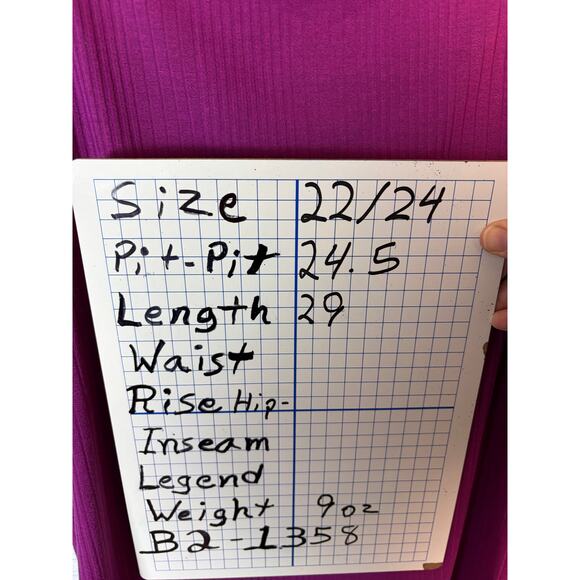 Size 22/24
Pit-Pit 24.5
Length 29
Waist
Rise Hip-
Inseam
Legend
Weight 9oz
B2-1358